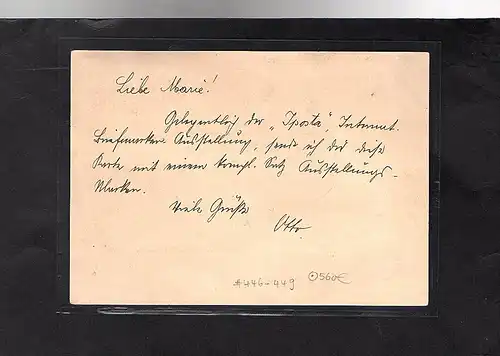 Liebe Marie!
Gelegentlich der „Iposta", Internat.
Briefmarken-Ausstellung, sende ich dir diese
Karte mit einem kompl. Satz Ausstellungs-
Marken.
Viele Grüße
Otto.
*446-449 ⊙560€